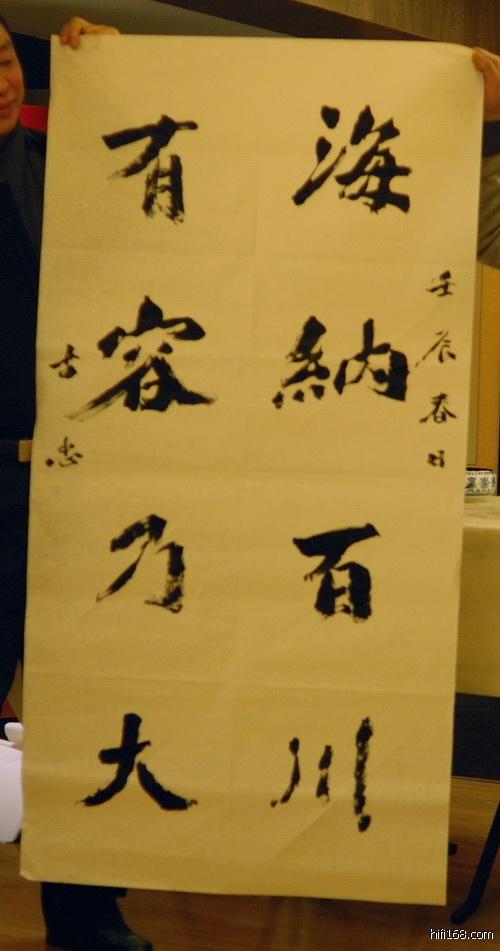 壬辰春日
海納百川
有容乃大
士忠
hifi168.com